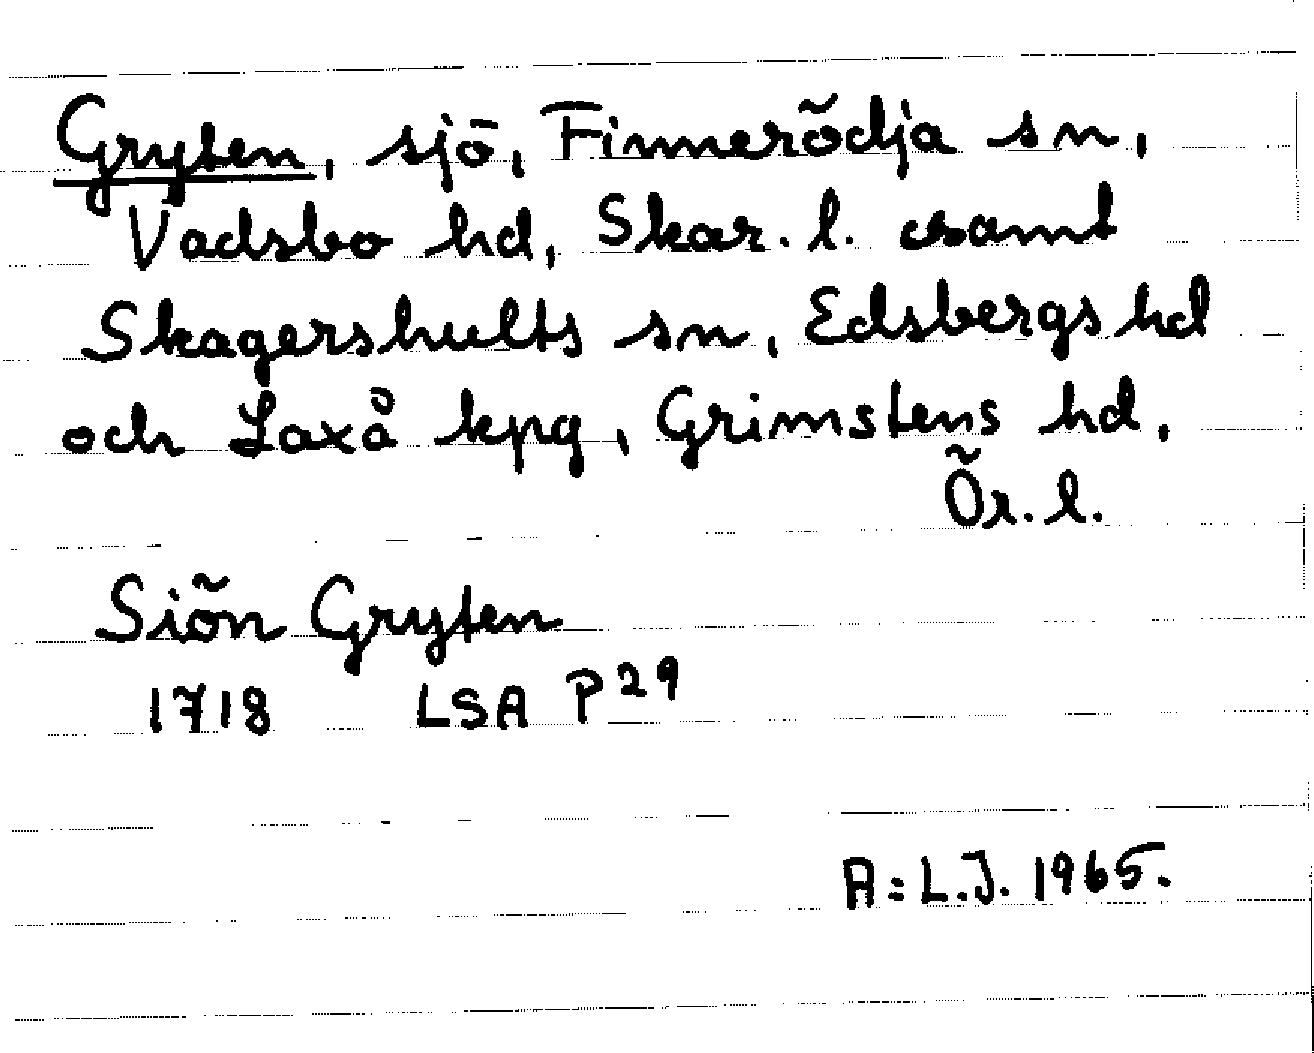 Gryten, sjö, Finnerödja sn,
Vadsbo hd, Skar. l. samt
Skagershults sn, Edsbergs hd
och Laxå kpg, Grimstens hd,
Ör. l.
Siön Gryten
1718 LSA P29
A:L.J. 1965.